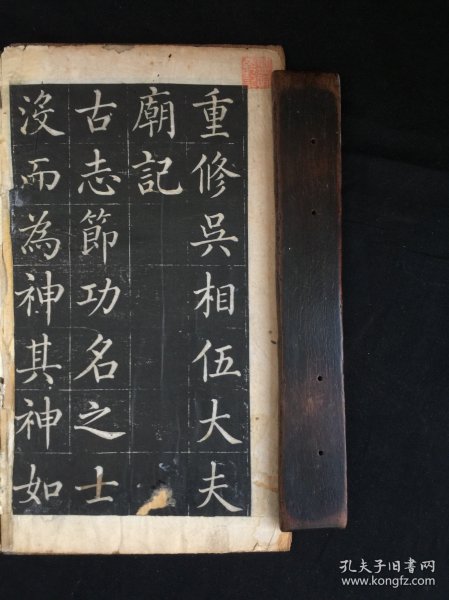 重修吳相伍大夫
廟記
古志節功名之士
沒而為神其神如
孔夫子旧书网
www.kongfz.com